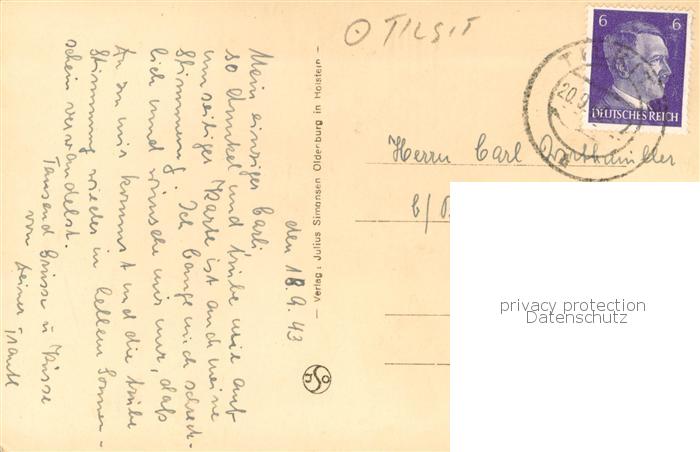 O TILSIT
6 6
DEUTSCHES REICH
20.9
Herrn Carl
b/
den 18.9.43
Mein einziger Carli
so dunkel und trübe wie auf
umseitiger Karte ist auch meine
Stimmung. Ich bange mich schreck-
lich und wünsche mir nur, daß
Du zu mir kommst und die trübe
Stimmung wieder in hellen Sonnen-
schein verwandelst.
Tausend Grüsse u Küsse
von Deiner
— Verlag: Julius Simonsen Oldenburg in Holstein —
privacy protection
Datenschutz